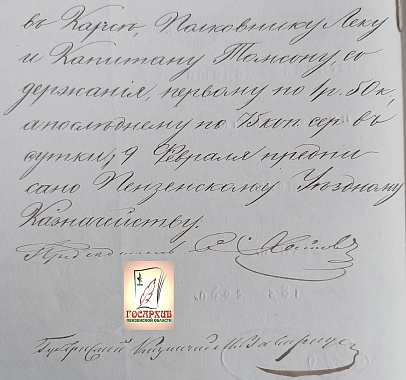 въ Карсѣ, Полковнику Леку
и Капитану Томсону, со
держанія, первому по 1 р. 50 к,
а послѣднему по 75 коп. сер. въ
сутки, 9 Февраля предпи
сано Пензенскому Уѣздному
Казначейству.
Предсѣдатель
ГОСАРХИВ
ПЕНЗЕНСКОЙ ОБЛАСТИ
Губернскій Казначей